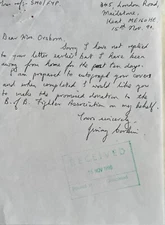 445, London Road,
Maidstone,
Kent. ME16
15th Nov. 92.
Dear Mrs Osborn,
Sorry I have not replied
to your letter earlier but I have been
away from home for the past ten days.
I am prepared to autograph your covers
and when completed I would like you
to make the promised donation to the
B. of B. Fighter Association on my behalf.
Yours sincerely,